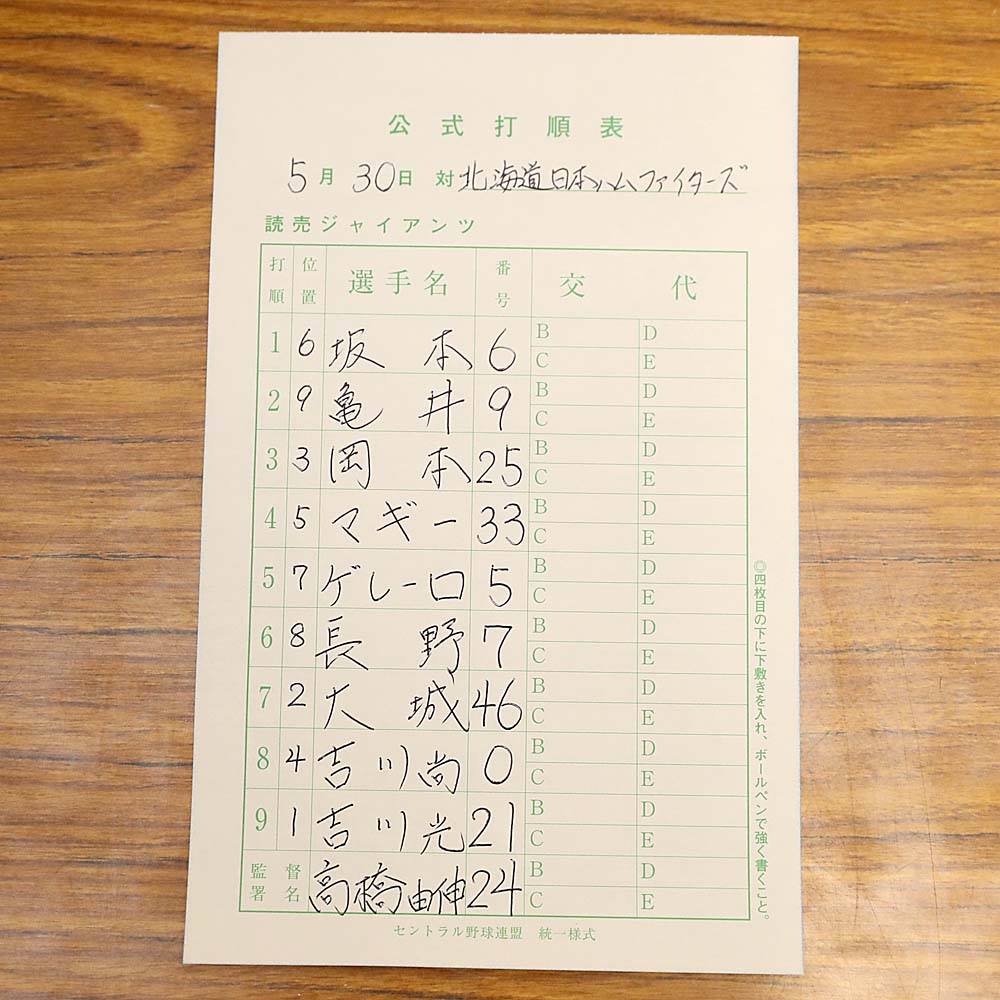 公式打順表
5月30日 対 北海道日本ハムファイターズ
読売ジャイアンツ
打順 位置 選手名 番号 交代
1 6 坂本 6 B C D E
2 9 亀井 9 B C D E
3 3 岡本 25 B C D E
4 5 マギー 33 B C D E
5 7 ゲレーロ 5 B C D E
6 8 長野 7 B C D E
7 2 大城 46 B C D E
8 4 吉川尚 0 B C D E
9 1 吉川光 21 B C D E
監督署名 高橋由伸 24 B C D E
セントラル野球連盟 統一様式
◎四枚目の下に下敷きを入れ、ボールペンで強く書くこと。